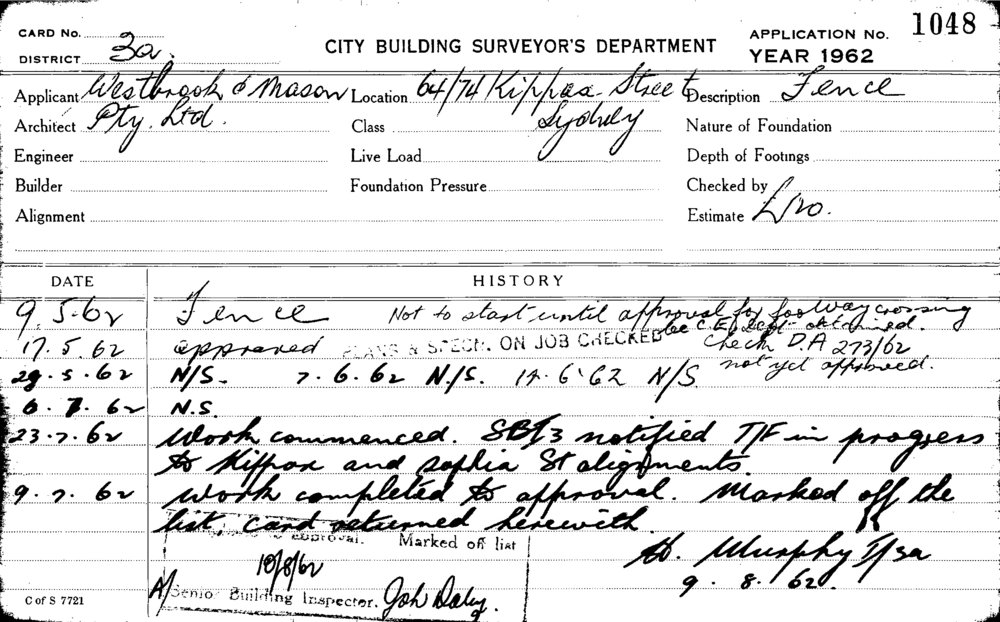 CARD No.
DISTRICT 3a.
CITY BUILDING SURVEYOR'S DEPARTMENT
APPLICATION No. 1048
YEAR 1962
Applicant Westbrook & Mason Location 64/74 Kippax Street Description Fence
Architect Pty. Ltd. Class Sydney Nature of Foundation
Engineer Live Load Depth of Footings
Builder Foundation Pressure Checked by
Alignment Estimate £120.
DATE HISTORY
9.5.62 Fence Not to start until approval for footway crossing
by C.E. Dept. obtained.
17.5.62 approved PLANS & SPECN. ON JOB CHECKED Check D.A 273/62
not yet approved.
29.5.62 N/S. 7.6.62 N/S. 14.6.62 N/S
6.7.62 N.S.
23.7.62 Work commenced. SBI/3 notified T/F in progress
to Kippax and Sophia St alignments.
9.7.62 Work completed to approval. Marked off the
list, card returned herewith.
approval. Marked off list
10/8/62
H. Murphy I/3a
9.8.62
A/Senior Building Inspector. Joh Daley.
C of S 7721